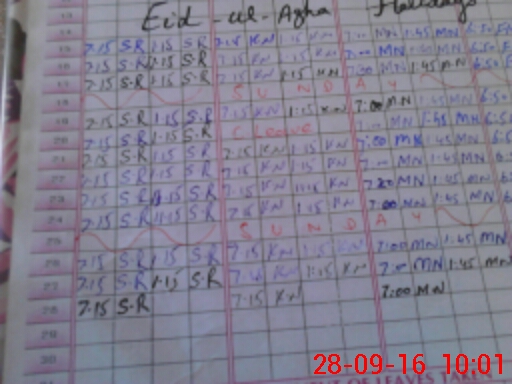 Eid-ul-Azha Holidays
7.15 S.R 1.15 S.R 7.15 KN 1.15 KN 7:00 MN 1:45 MN 6:50
7.15 S.R 1.15 S.R 7.15 KN 1.15 KN MN 1:45 MN 6:50
17 7.15 S.R 1.15 S.R 7.15 KN 1.15 KN 7:00 MN 1:45 MN 6:50
S U N D A Y
19 7.15 S.R 1.15 S.R 7.15 KN 1.15 KN 7:00 MN 1:45 MN 6:50
20 7.15 S.R 1.15 S.R C Leave MN 1:45 MN 6:50
21 7.15 S.R 1.15 S.R 7.15 KN 1.15 KN 7:00 MN 1:45 MN 6:50
22 7.15 S.R 1.15 S.R 7.15 KN 1.15 KN MN 1:45 MN 6:50
23 7.15 S.R 1.15 S.R 7.15 KN KN 7:00 MN 1:45 MN 6:50
24 7.15 S.R 1.15 S.R 7.15 KN 1.15 KN 7:00 MN 1:45 MN 6:50
25 S U N D A Y
26 7.15 S.R 1.15 S.R 7.15 KN 1.15 KN 7:00 MN 1:45 MN
27 7.15 S.R 1.15 S.R 7.15 KN 1:15 KN 7:00 MN 1:45 MN
28 7.15 S.R 7.15 KN 7:00 MN
29
30
28-09-16 10:01
OF LEAVES TAKEN